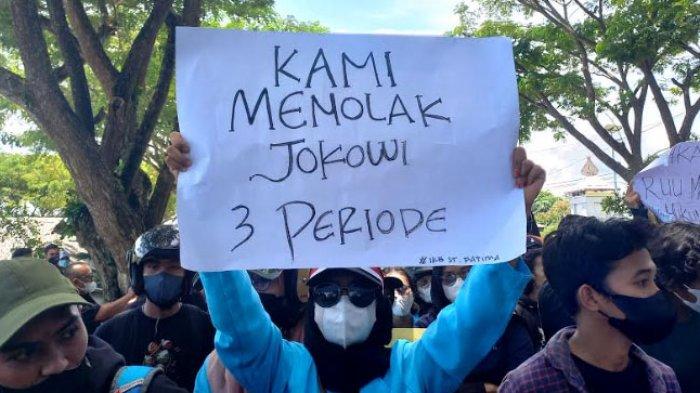 KAMI
MENOLAK
JOKOWI
3 PERIODE
#IKB ST. FATIMA
RUU